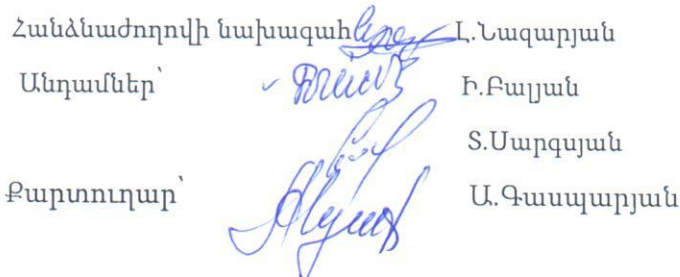 Հանձնաժողովի նախագահ Լ.Նազարյան
Անդամներ՝ Ի.Բալյան
Տ.Սարգսյան
Քարտուղար՝ Ա.Գասպարյան